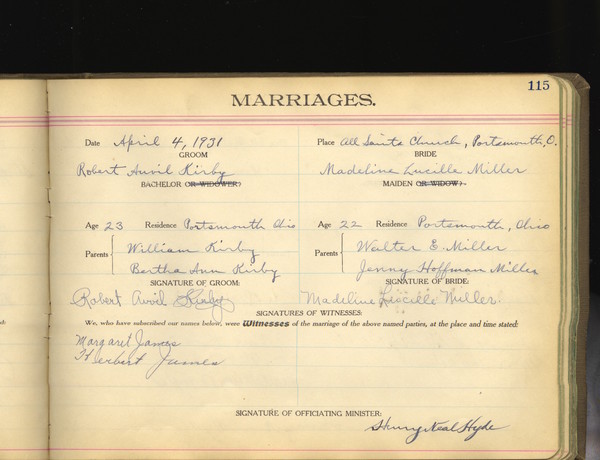 115
MARRIAGES.
Date April 4, 1931 Place All Saints Church, Portsmouth, O.
GROOM BRIDE
Robert Auvil Kirby Madeline Lucille Miller
BACHELOR OR WIDOWER? MAIDEN OR WIDOW?
Age 23 Residence Portsmouth Ohio Age 22 Residence Portsmouth, Ohio
Parents William Kirby Parents Walter E. Miller
Bertha Ann Kirby Jenny Hoffman Miller
SIGNATURE OF GROOM: SIGNATURE OF BRIDE:
Robert Avvil Kirby Madeline Lucille Miller
SIGNATURES OF WITNESSES:
We, who have subscribed our names below, were Witnesses of the marriage of the above named parties, at the place and time stated:
Margaret James
Herbert James
SIGNATURE OF OFFICIATING MINISTER:
Henry Neal Hyde